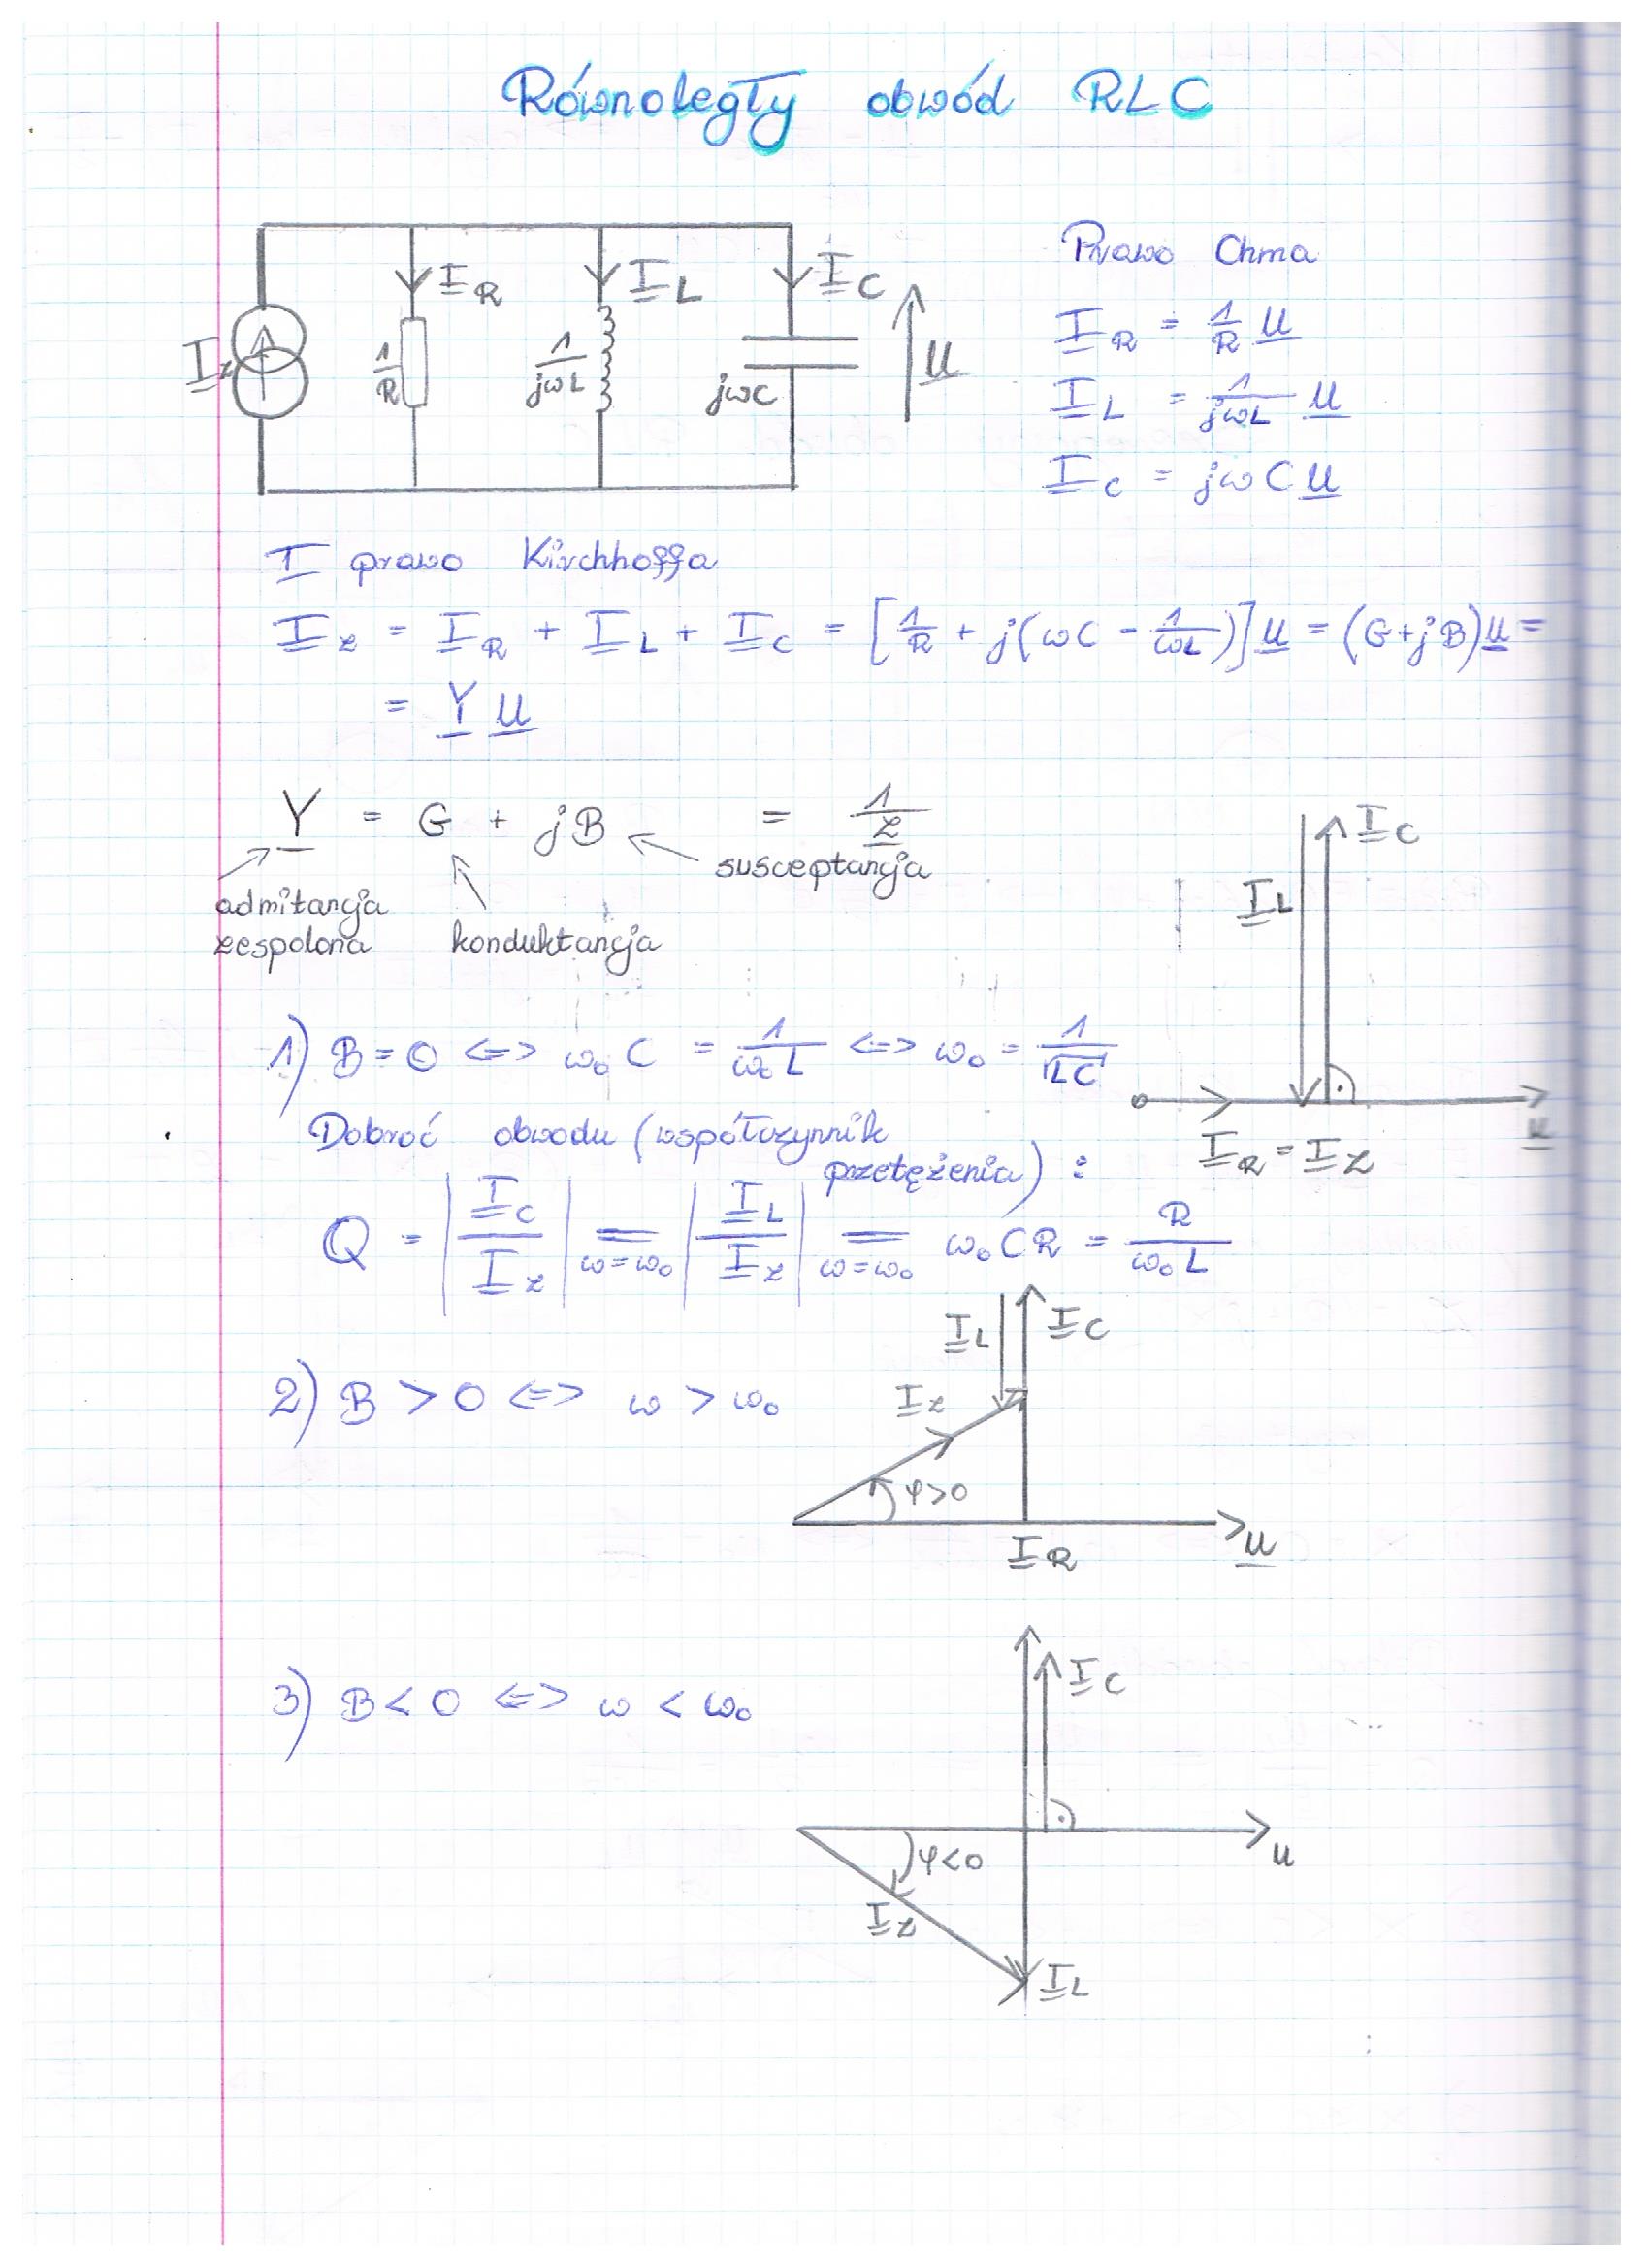 Równoległy obwód RLC
I_R I_L I_C
I_z 1/R 1/jωL jωC U
Prawo Ohma
I_R = 1/R U
I_L = 1/jωL U
I_C = jωC U
I prawo Kirchhoffa
I_z = I_R + I_L + I_C = [1/R + j(ωC - 1/ωL)]U = (G+jB)U =
= Y U
Y = G + jB = 1/Z
susceptancja
admitancja
zespolona konduktancja
I_C
I_L
I_R = I_z
1) B = 0 <=> ω₀C = 1/ω₀L <=> ω₀ = 1/√LC
Dobroć obwodu (współczynnik
przetężenia) :
Q = |I_C/I_z| =_{ω=ω₀} |I_L/I_z| =_{ω=ω₀} ω₀CR = R/ω₀L
2) B > 0 <=> ω > ω₀
I_L I_C
I_z
φ>0
I_R U
3) B < 0 <=> ω < ω₀
I_C
U
φ<0
I_z
I_L